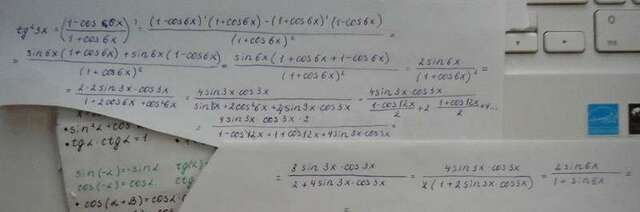 tg²3x = (1-cos6x / 1+cos6x)' = (1-cos6x)'(1+cos6x) - (1+cos6x)'(1-cos6x) / (1+cos6x)² =
= sin6x(1+cos6x) + sin6x(1-cos6x) / (1+cos6x)² = sin6x(1+cos6x+1-cos6x) / (1+cos6x)² = 2sin6x / (1+cos6x)² =
= 2·2sin3x·cos3x / 1+2cos6x+cos²6x = 4sin3x·cos3x / = 4sin3x·cos3x / 1-cos12x / 2 + 2 · 1+cos12x / 2 +
= 4sin3x·cos3x·2 / 1-cos12x+1+cos12x+4sin3x·cos3x =
• sin²α + cos
• tgα · ctgα = 1
sin(-α) = -sinα tg(
cos(-α) = cosα ct
• cos(α+β) = cosα
= 8sin3x·cos3x / 2+4sin3x·cos3x = 4sin3x·cos3x / 2(1+2sin3x·cos3x) = 2sin6x / 1+sin6x
=